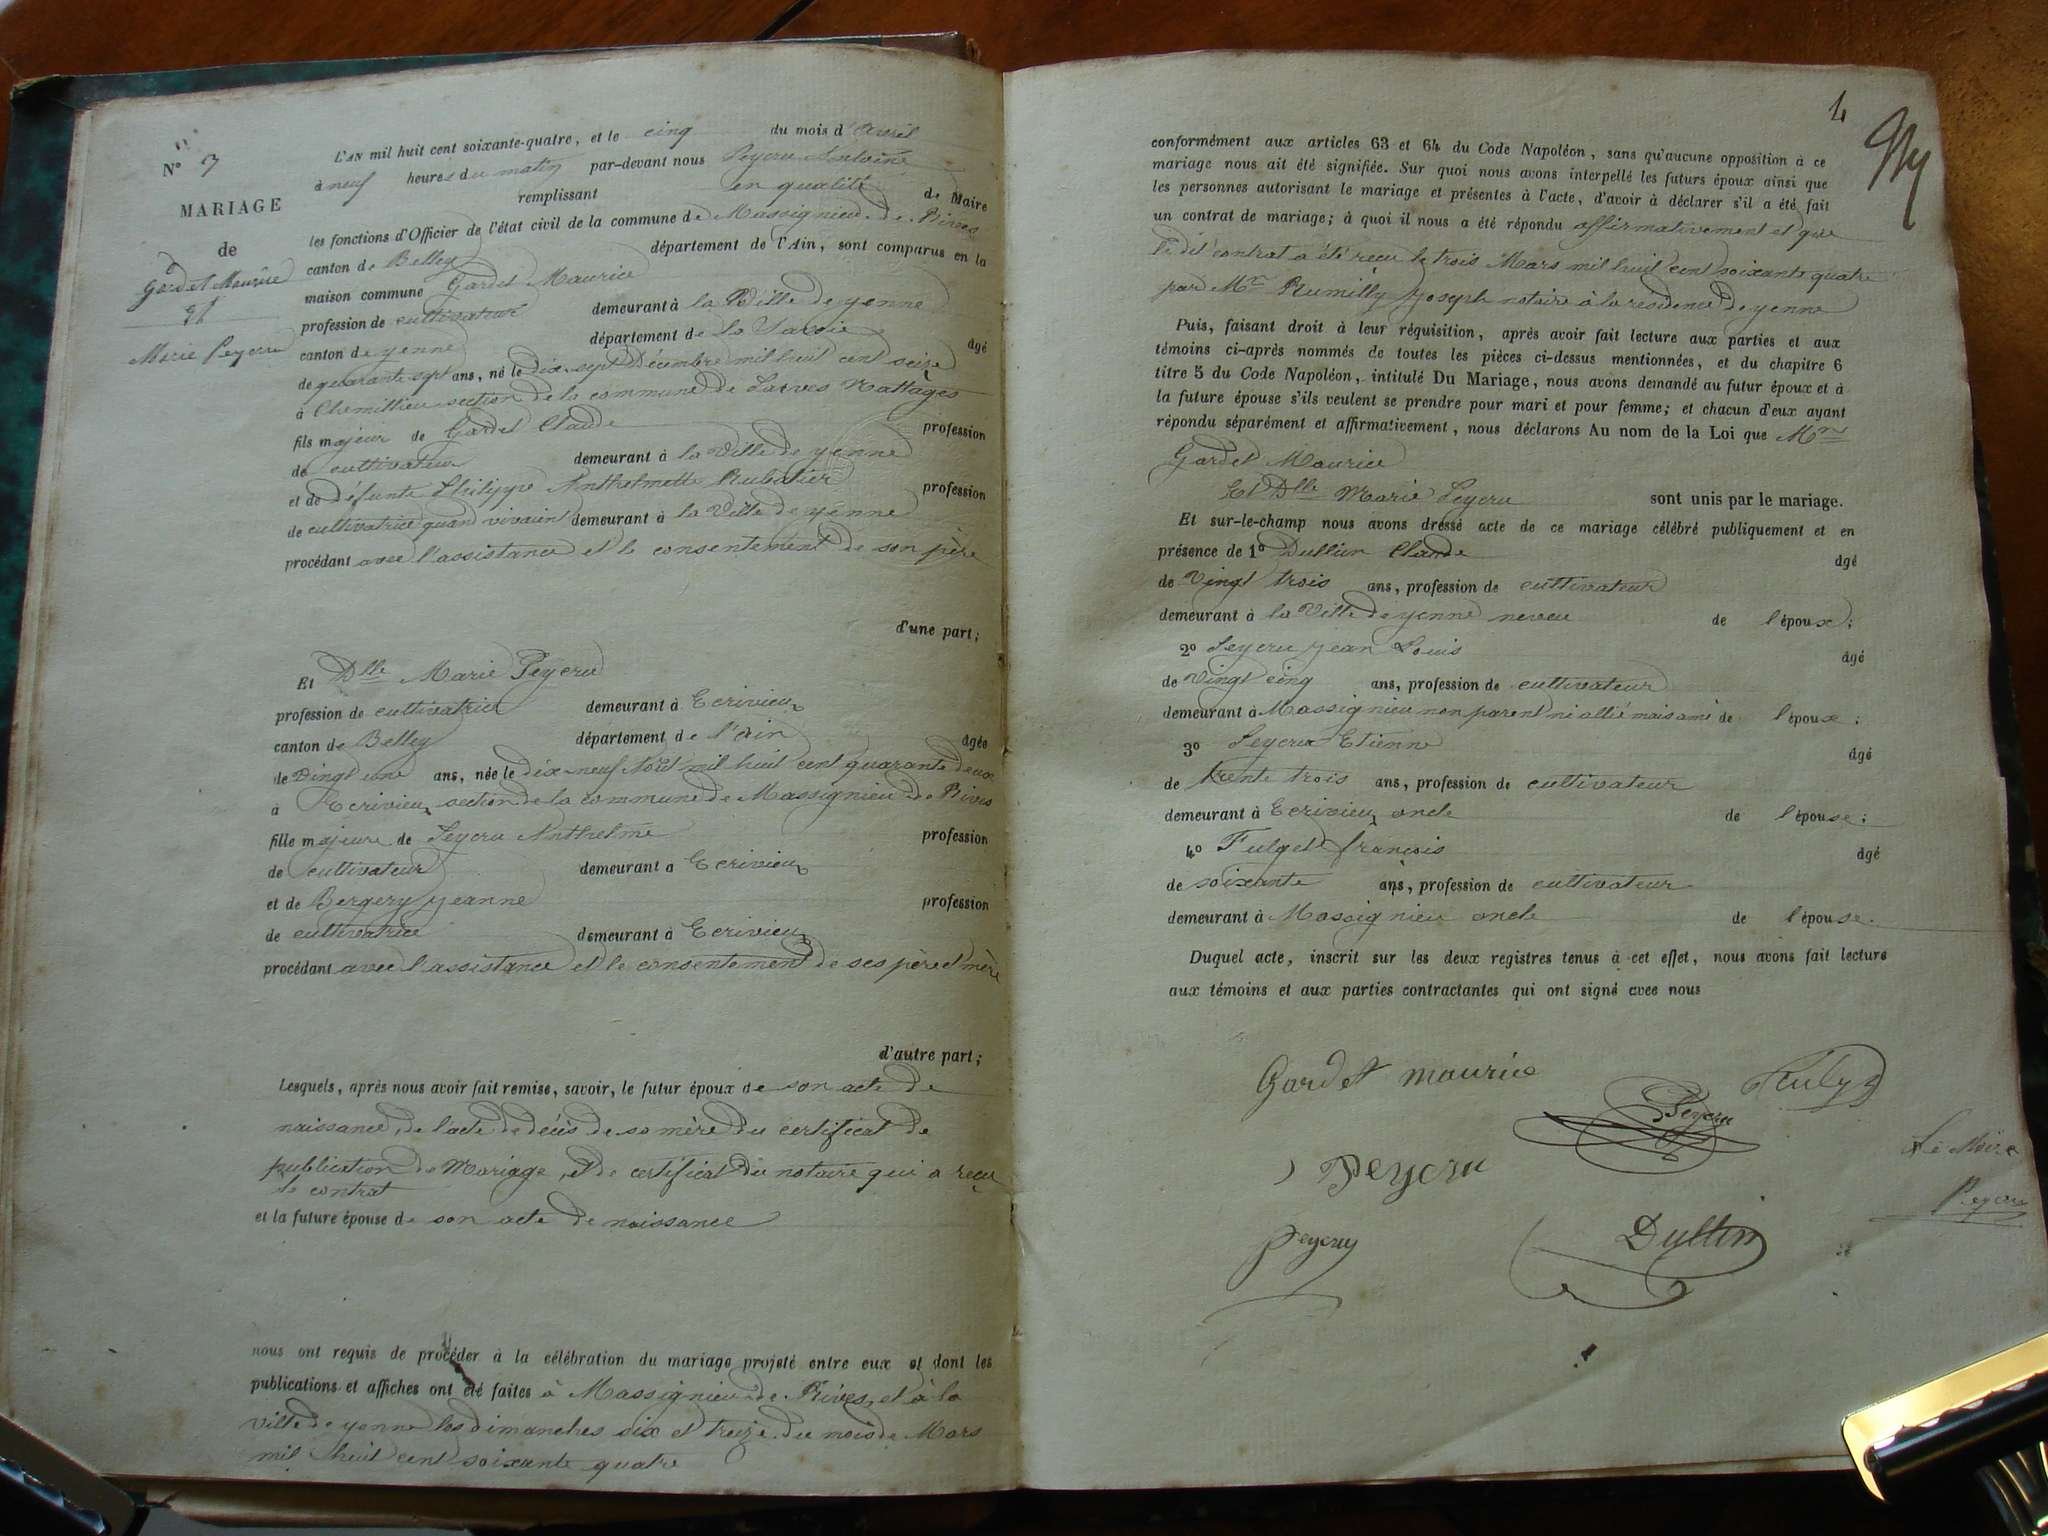 N° 7
MARIAGE
de
Gardet Maurice
Et
Marie Peycru
L'AN mil huit cent soixante-quatre, et le cinq du mois d'Avril
à neuf heures du matin par-devant nous Peycru Antoine
remplissant en qualité de Maire
les fonctions d'Officier de l'état civil de la commune de Massignieu de Rives
canton de Belley département de l'Ain, sont comparus en la
maison commune Gardet Maurice
profession de cultivateur demeurant à la Ville de yenne
canton de yenne département de la Savoie âgé
de quarante sept ans, né le dix-sept Décembre mil huit cent seize
à Chemillieu section de la commune de Nattages
fils majeur de Gardet Claude profession
de cultivateur demeurant à la Ville de yenne
et de défunte Philippe Anthelmette Rubatier profession
de cultivatrice quand vivait demeurant à la Ville de yenne
procédant avec l'assistance et le consentement de son père
d'une part;
Et Dlle Marie Peycru
profession de cultivatrice demeurant à Ecrivieux
canton de Belley département de l'ain âgée
de Vingt une ans, née le dix-neuf mil huit cent quarante deux
à Ecrivieux section de la commune de Massignieu de Rives
fille majeure de Peycru Anthelme profession
de cultivateur demeurant à Ecrivieux
et de Bergery jeanne profession
de cultivatrice demeurant à Ecrivieux
procédant avec l'assistance et le consentement de ses père et mère
d'autre part;
Lesquels, après nous avoir fait remise, savoir, le futur époux de son acte de
naissance, de l'acte de décès de sa mère du certificat de
publication de Mariage, et de certificat du notaire qui a reçu
le contrat
et la future épouse de son acte de naissance
nous ont requis de procéder à la célébration du mariage projeté entre eux et dont les
publications et affiches ont été faites à Massignieu de Rives, et à la
ville de yenne les dimanches six et treize du mois de Mars
mil huit cent soixante quatre
4
conformément aux articles 63 et 64 du Code Napoléon, sans qu'aucune opposition à ce
mariage nous ait été signifiée. Sur quoi nous avons interpellé les futurs époux ainsi que
les personnes autorisant le mariage et présentes à l'acte, d'avoir à déclarer s'il a été fait
un contrat de mariage; à quoi il nous a été répondu affirmativement et que
le dit contrat a été reçu le trois Mars mil huit cent soixante quatre
par Me Rumilly joseph notaire à la résidence de yenne
Puis, faisant droit à leur réquisition, après avoir fait lecture aux parties et aux
témoins ci-après nommés de toutes les pièces ci-dessus mentionnées, et du chapitre 6
titre 5 du Code Napoléon, intitulé Du Mariage, nous avons demandé au futur époux et à
la future épouse s'ils veulent se prendre pour mari et pour femme; et chacun d'eux ayant
répondu séparément et affirmativement, nous déclarons Au nom de la Loi que Mr
Gardet Maurice
Et Dlle Marie Peycru sont unis par le mariage.
Et sur-le-champ nous avons dressé acte de ce mariage célébré publiquement et en
présence de 1° Dullin Claude âgé
de Vingt trois ans, profession de cultivateur
demeurant à la Ville de yenne neveu de l'époux;
2° Peycru jean Louis âgé
de Vingt cinq ans, profession de cultivateur
demeurant à Massignieu non parent ni allié mais ami de l'époux;
3° Peycru Etienne âgé
de trente trois ans, profession de cultivateur
demeurant à Ecrivieux oncle de l'épouse;
4° Fulgel françois âgé
de soixante ans, profession de cultivateur
demeurant à Massignieu oncle de l'épouse.
Duquel acte, inscrit sur les deux registres tenus à cet effet, nous avons fait lecture
aux témoins et aux parties contractantes qui ont signé avec nous
Gardet maurice
Peycru
Peycru
Le Maire
Peycru
Peycru
Dullin